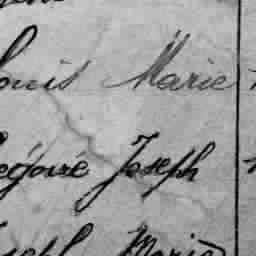 ouis Marie
égoire Joseph
seph Marie